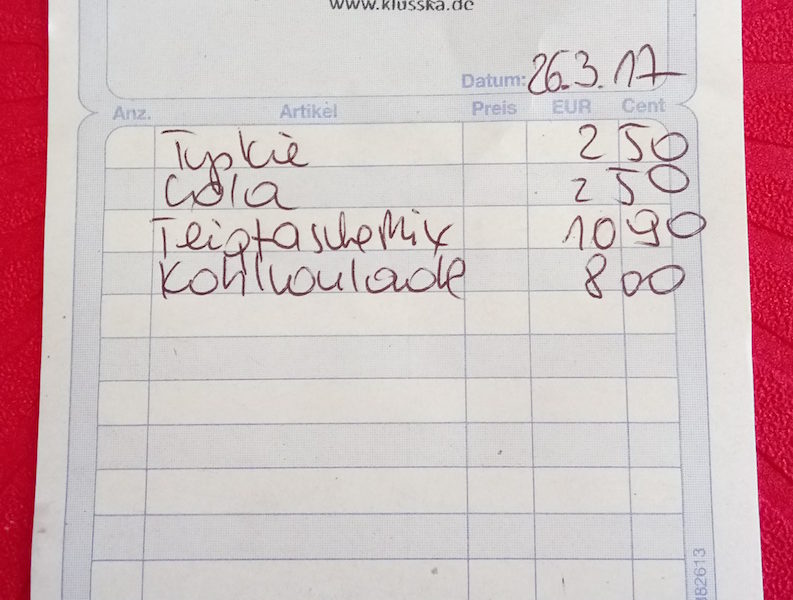 www.klusska.de
Datum: 26.3.17
Anz. Artikel Preis EUR Cent
Typkie 2 50
Cola 2 50
Teigtasche Mix 10 90
Kohlroulade 8 00